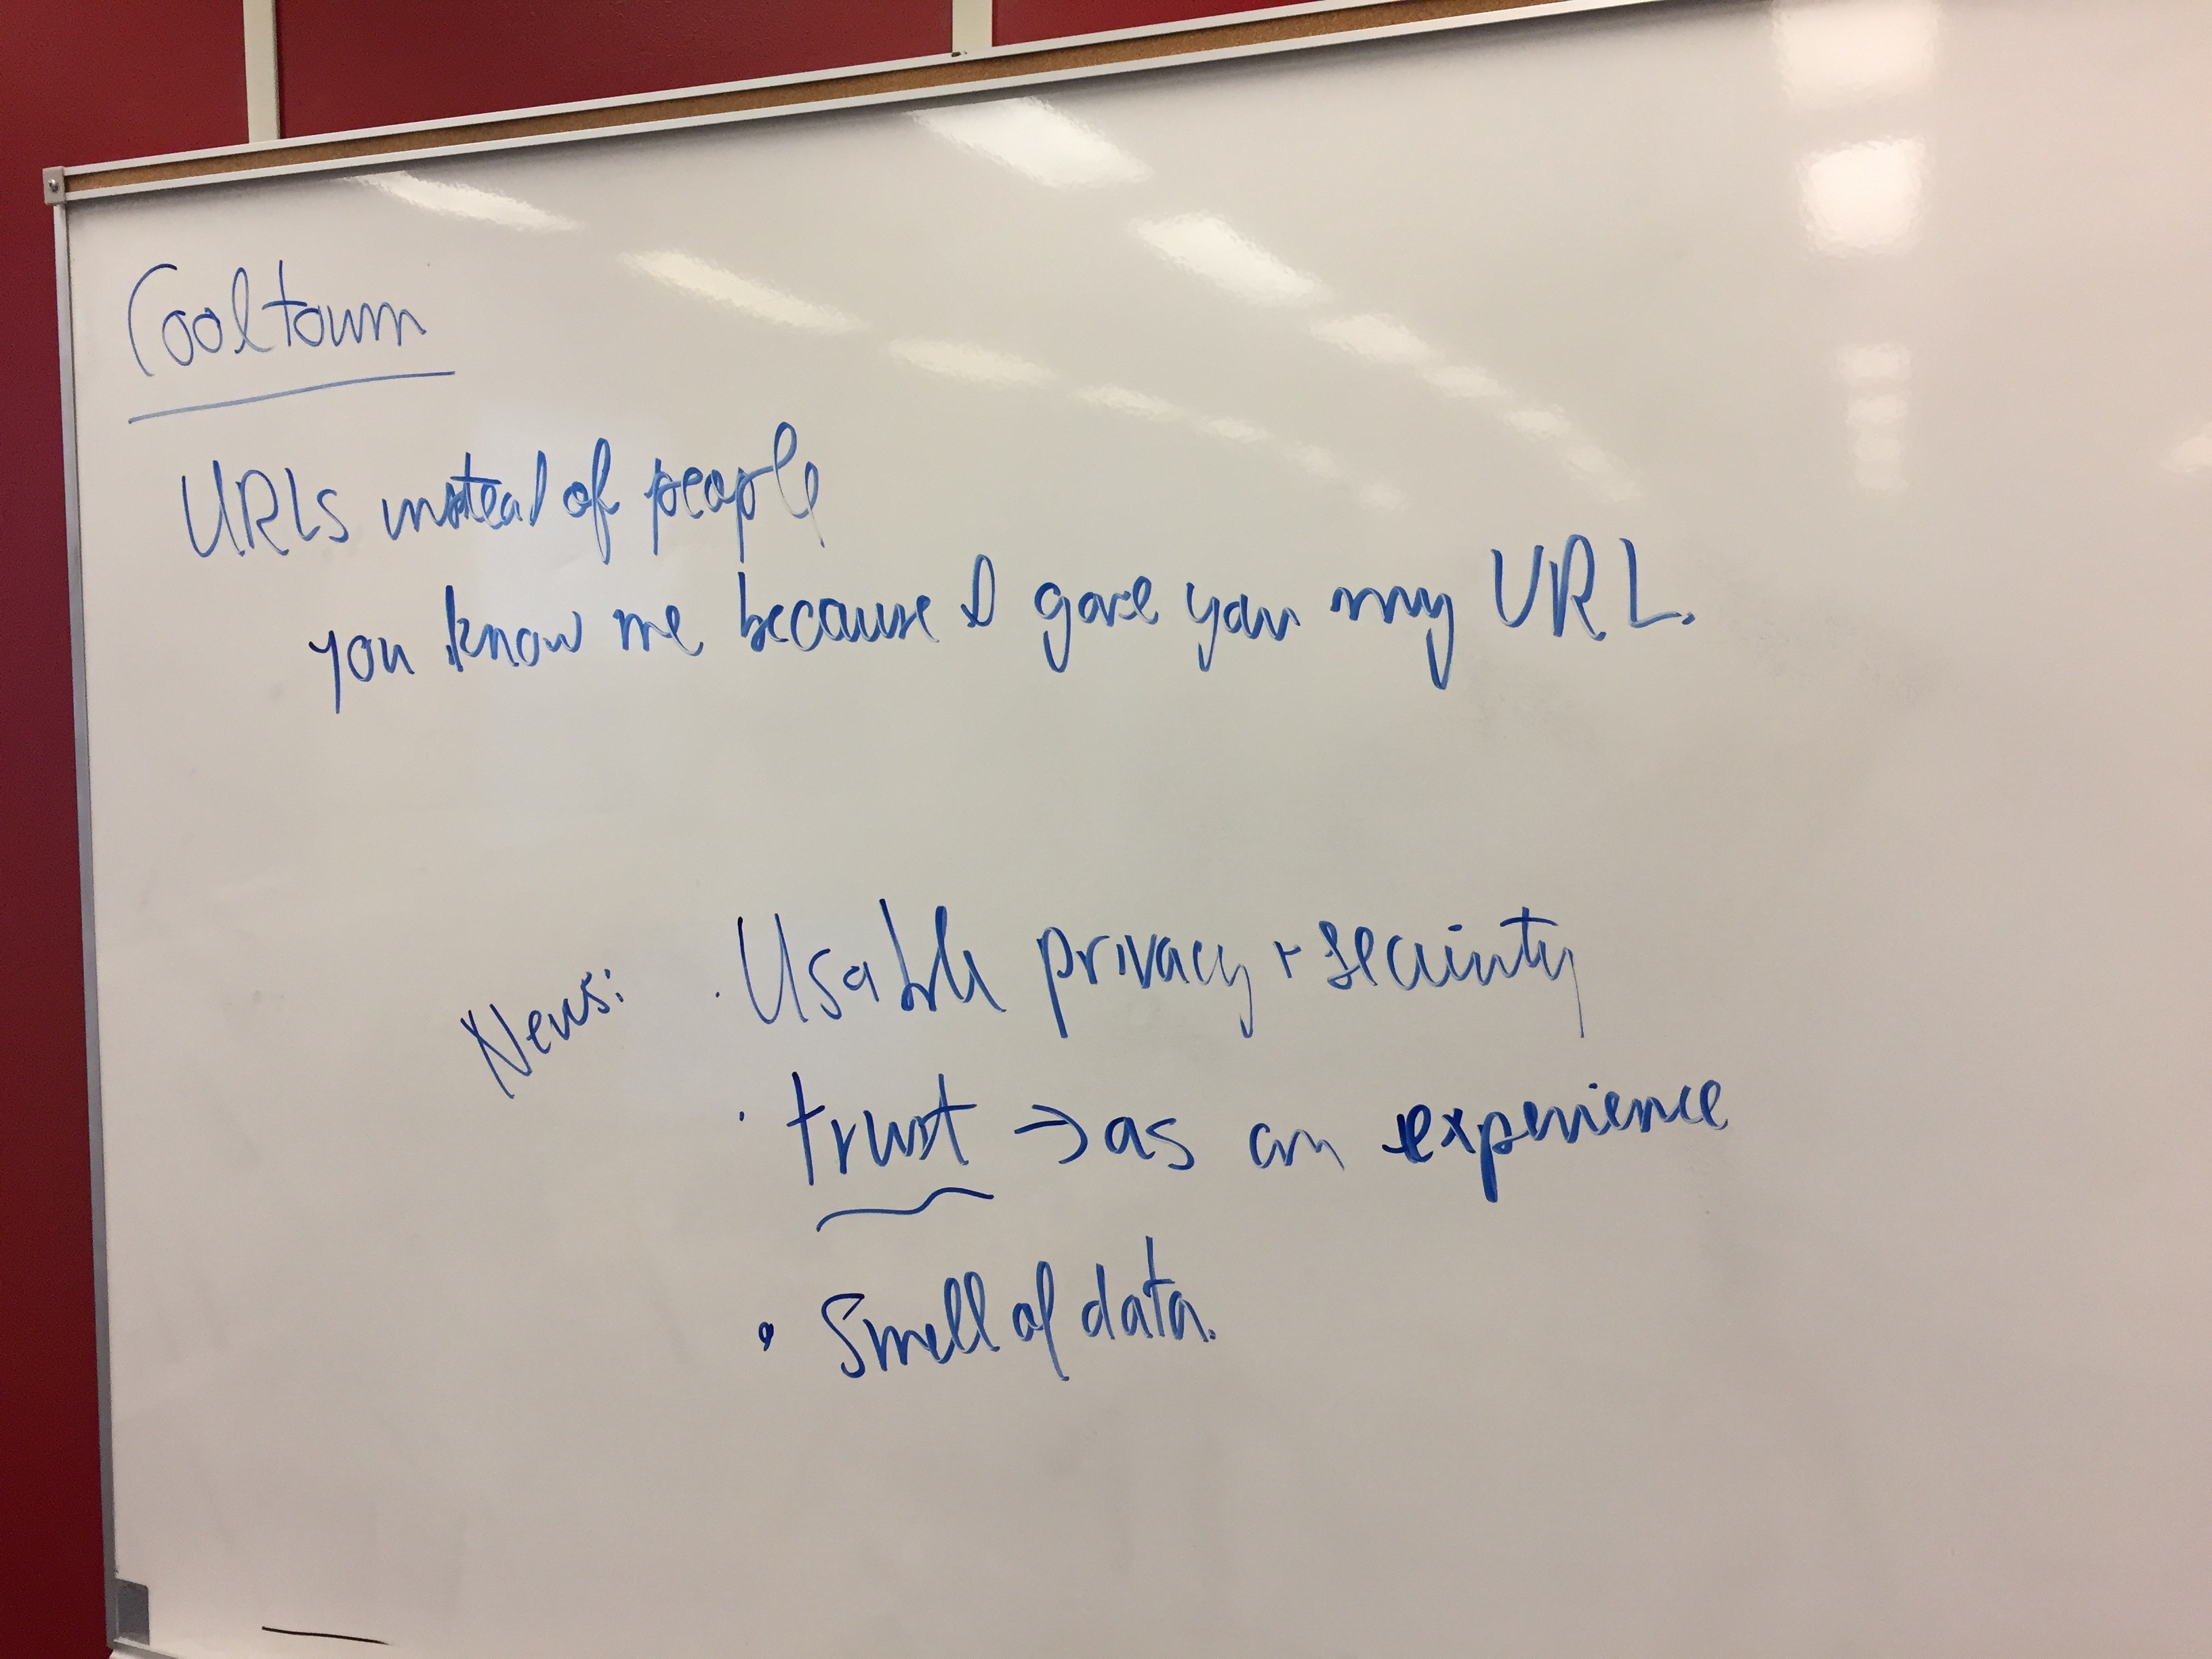 Cooltown
URLs instead of people
you know me because I gave you my URL.
News:
· Usable privacy + security
· trust → as an experience
• Smell of data.